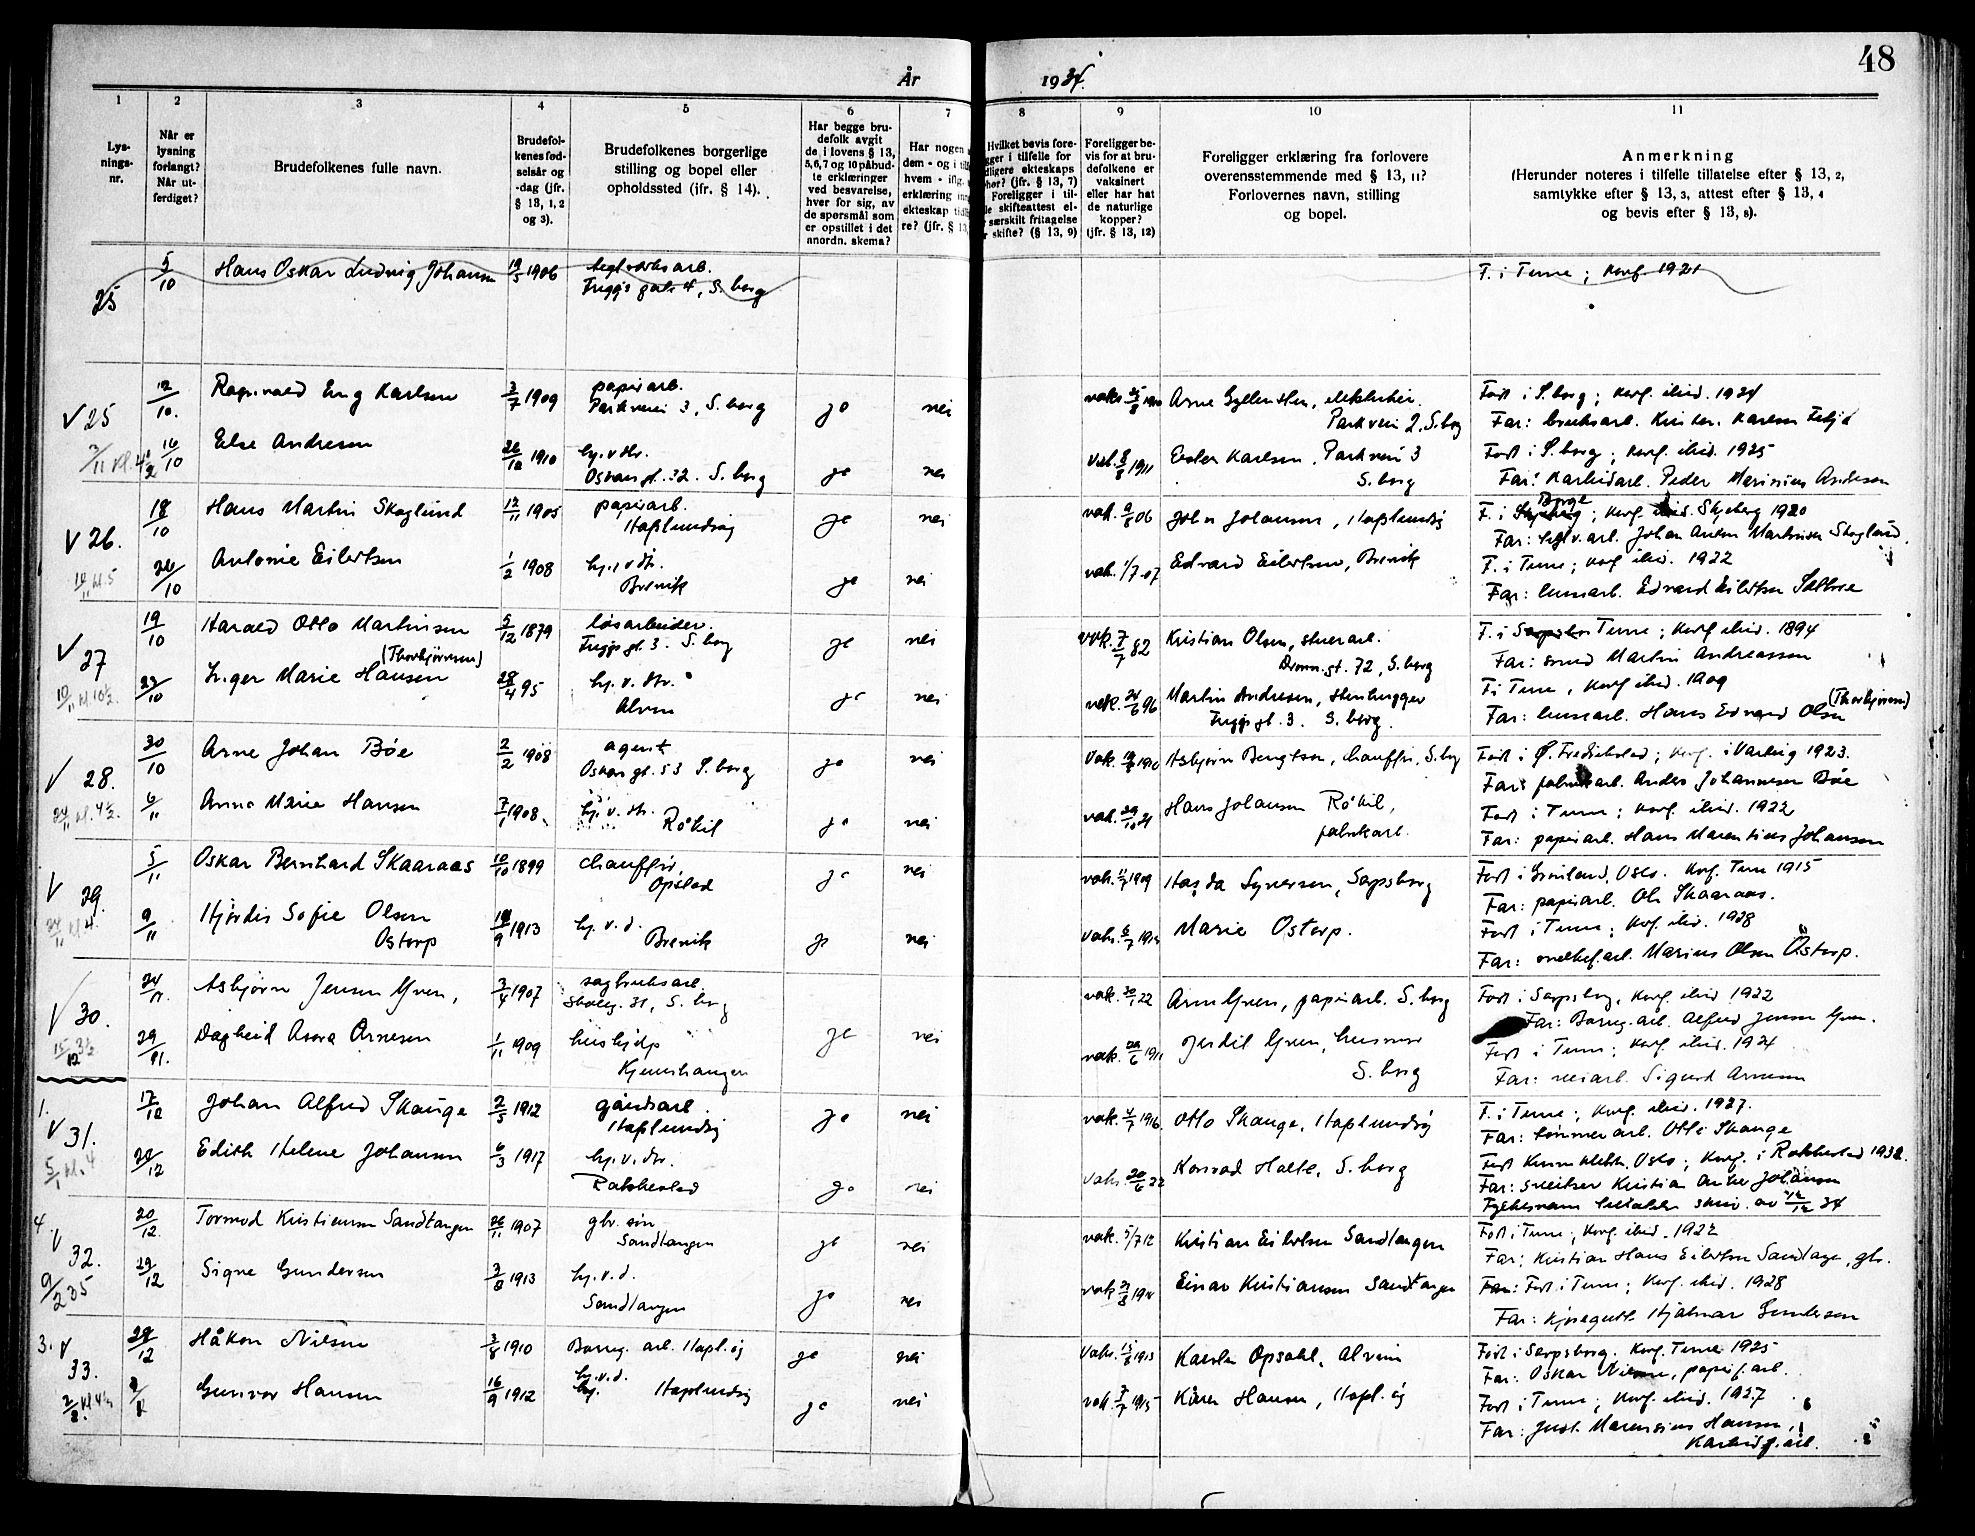 48
År 1934.
1 2 3 4 5 6 7 8 9 10 11
Lys-
nings-
nr.
Når er
lysning
forlangt?
Når ut-
ferdiget?
Brudefolkenes fulle navn.
Brudefol-
kenes fød-
selsår og
-dag (jfr.
§ 13, 1, 2
og 3).
Brudefolkenes borgerlige
stilling og bopel eller
opholdssted (jfr. § 14).
Har begge bru-
defolk avgit
de i lovens § 13,
5,6,7 og 10 påbud-
te erklæringer
ved besvarelse,
hver for sig, av
de spørsmål som
er opstillet i det
anordn. skema?
Har nogen
dem - og i til
hvem - iflg.
erklæring
ekteskap tidl
re? (jfr. § 13,
Hvilket bevis fore-
gger i tilfelle for
dligere ekteskaps
phør? (jfr. § 13, 7)
Foreligger i til-
le skifteattest el-
særskilt fritagelse
r skifte? (§ 13, 9)
Foreligger be-
vis for at bru-
defolkene er
vaksinert
eller har hat
de naturlige
kopper?
(jfr. § 13, 12)
Foreligger erklæring fra forlovere
overensstemmende med § 13, 11?
Forlovernes navn, stilling
og bopel.
Anmerkning
(Herunder noteres i tilfelle tillatelse efter § 13, 2,
samtykke efter § 13, 3, attest efter § 13, 4
og bevis efter § 13, 8).
25 5/10 Hans Oskar Ludvig Johansen 19/5 1906 teglverksarb. F. i Tune; konf. 1921
Friggs gate 4, S.borg
V 25 12/10. Ragnvald Eng Karlsen 3/7 1909 papirarb. ja nei Arne Gyllensten, elektriker. Født i S.borg; konf. ibid. 1924
Parkveien 3, S.borg Parkvei 2, S.borg Far: bruksarb. Karlsen
16/10 Else Andresen 26/12 1910 hj. v. str. ja nei vak. 8/8 1911 Ester Karlsen, Parkveien 3 Født i S.borg; konf. ibid. 1925
Oskars gt. 32. S.borg S.borg Far: Karbidarb. Peder Marinius Andresen
V 26. 18/10 Hans Martin Skoglund 12/11 1905 papirarb. ja nei vak. 9/8 06 John Johansen, Hafslundsøy F. i Borge; konf. Skjeberg 1920
Hafslundsøy Far: teglv.arb. Johan Anton Martinsen Skoglund.
26/10 Antonie Eilertsen 1/2 1908 hj. v. str. ja nei vak. 1/7 07 Edvard Eilertsen, Brevik F. i Tune; konf. ibid. 1922
Brevik Far: Edvard Eilertsen
V 27 19/10 Harald Otto Martinsen 5/12 1879 løsarbeider. ja nei vak. 7/7 82 Kristian Olsen, stuerarb. F. i Tune; konf. ibid. 1894
Friggs gt. 3. S.borg Dronn.gt. 72, S.borg Far: smed Martin Andreassen
(Thorbjørnsen)
23/10 Inger Marie Hansen 28/4 95 hj. v. str. ja nei vak. 24/6 96 Martin Andresen, stenhugger F. i Tune, konf. ibid. 1909
Alvim Friggs gt. 3. S.borg. Far: Hans Edvard Olsen (Thorbjørnsen)
V 28. 30/10 Arne Johan Bøe 2/2 1908 agent ja nei Asbjørn Bengtson, chauffør, S.borg Født i Ø. Fredrikstad; konf. i Varteig 1923.
Oskars gt. 53 S.borg Far: fabrikarb. Anders Johannesen Bøe
6/11 Anna Marie Hansen 7/1 1908 hj. v. str. ja nei vak. 29/10 21 Hans Johansen Råkil, Født i Tune; konf. ibid. 1922
Råkil fabrikarb. Far: papirarb. Hans Marentius Johansen
V 29. 5/11 Oskar Bernhard Skaaraas 10/10 1899 chauffør, ja nei vak. 1909 Syversen, Sarpsborg Født i Grønland, Oslo. Konf. Tune 1915
Opstad Far: papirarb. Ole Skaaraas.
9/11 Hjørdis Sofie Olsen 1913 hj. v. d. ja nei Marie Ostorp. Født i Tune; konf. ibid. 1928
Ostorp Brevik Far: Marius Olsen Östorp.
V 30. 24/11. Asbjørn Jensen Yven, 3/4 1907 sagbruksarb. vak. 30/1 22 Arne Yven, papirarb. S.borg Født i Sarpsborg, konf. ibid 1922
31, S.borg Far: Borreg. arb. Alfred Jensen Yven.
29/11. Dagheid Asora Arnesen 1/11 1909 hushjelp ja nei vak. 1911 Jendil Yven, husmor Født i Tune; konf. ibid. 1924
S.borg Far: veiarb. Sigurd Arnesen
1. V 31. 17/12 Johan Alfred Skauge 2/5 1912 gårdsarb. ja nei vak. 4/7 1916. Otto Skauge, Hafslundsøy F. i Tune; konf. ibid. 1927.
Hafslundsøy Far: tømmerarb. Otto Skauge
20/12 Edith Helene Johansen 6/3 1917 hj. v. str. ja nei vak. 20/6 22 Konrad Holte, S.borg Oslo; konf. i Rakkestad 1932.
Rakkestad Far: sveitser Kristian Anker Johansen
4 V 32. 20/12. Tormod Kristiansen Sandtangen 26/11 1907 gbr. søn ja nei vak. 5/7 12 Kristian Eilertsen Sandtangen Født i Tune; konf. ibid. 1922
Sandtangen Far: Kristian Hans Eilertsen Sandtangen, gbr.
29/12 Signe Gundersen 3/8 1913 hj. v. d. ja nei Einar Kristiansen Sandtangen Født i Tune; konf. ibid. 1928
Sandtangen Far: kjøregutt Hjalmar Gundersen
3. V 33. 28/12 Håkon Nilsen 3/8 1910 Borreg. arb. Hafsl.øy ja nei vak. 15/8 1913 Karsten Opsahl, Alvim Født i Sarpsborg. Konf. Tune 1925
Far: Oskar Nilsen, papirf. arb.
Gunvor Hansen 16/9 1912 hj. v. d. Hafslundsøy ja nei vak. 3/7 1915 Kåre Hansen, Hafsl.øy Født i Tune; konf. ibid. 1927
Far: Just. Marensius Hansen,
Karbidf. arb.